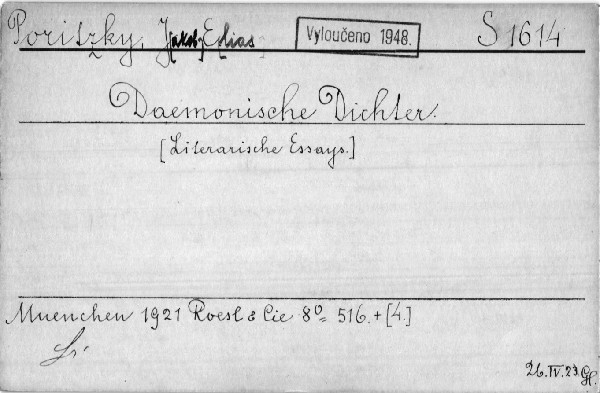 Poritzky, J[akob] E[lias]
Vyloučeno 1948.
S 1614
Daemonische Dichter.
[Literarische Essays.]
Muenchen 1921 Roesl & Cie 8º 516.+[4.]
26.IV.23.